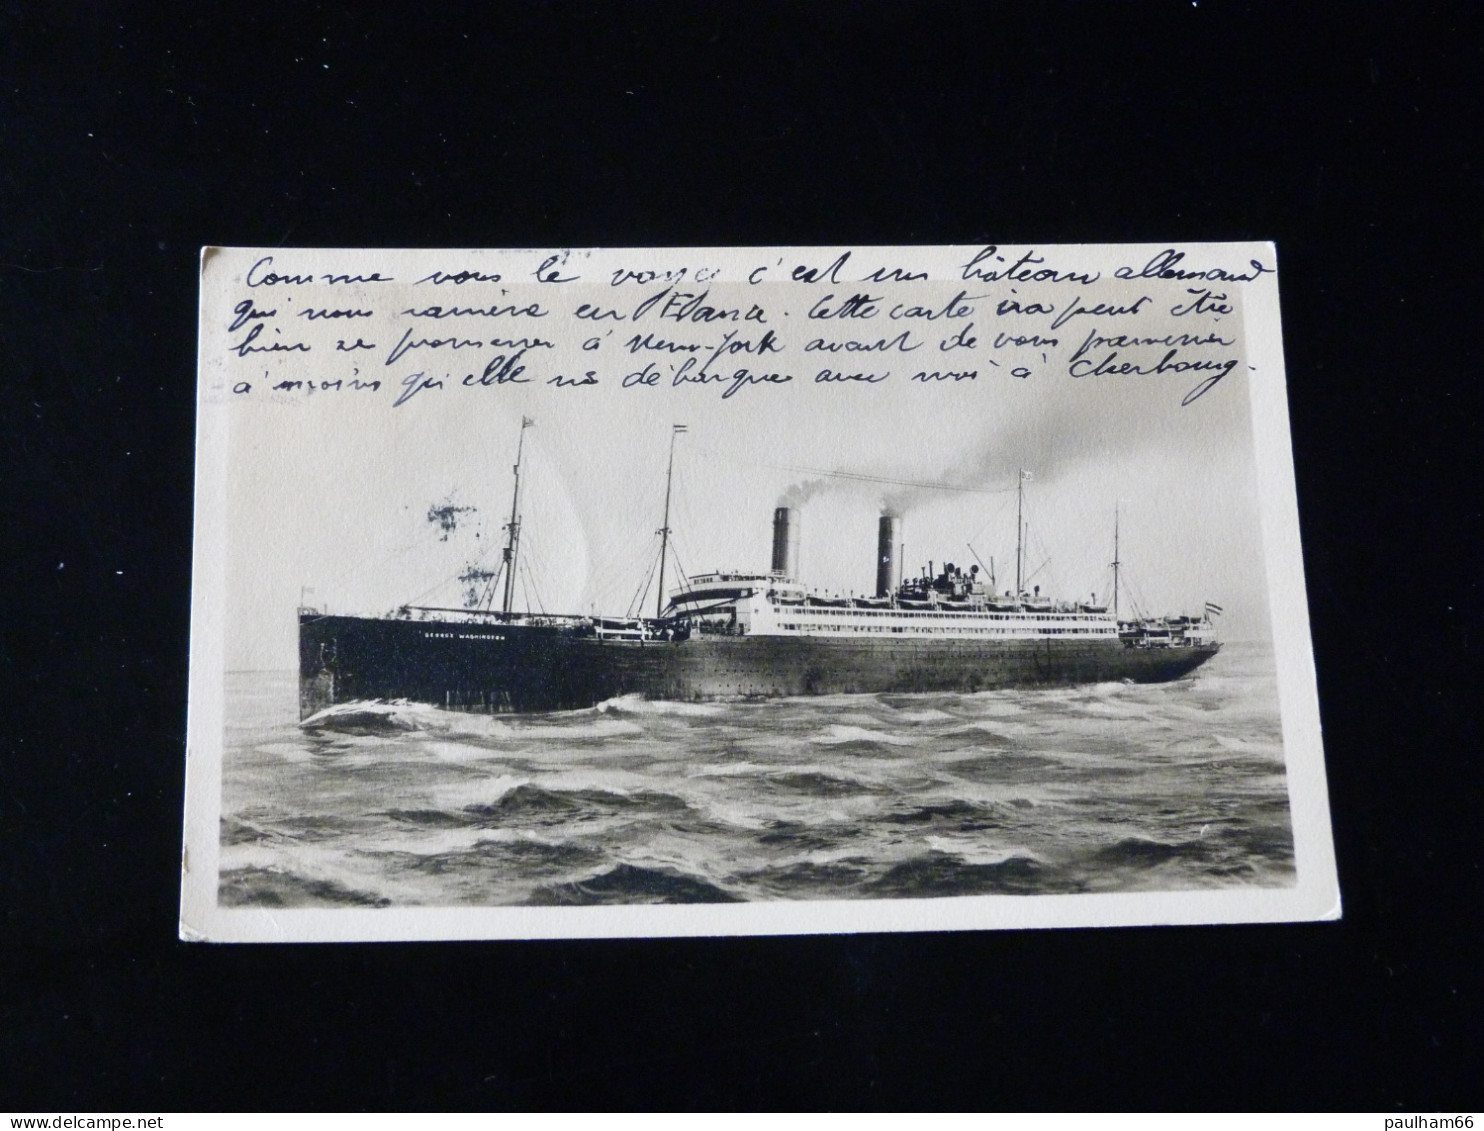 Comme vous le voyez c'est un bâteau allemand
qui nous ramène en France. Cette carte ira peut être
bien se promener à New-York avant de vous parvenir
à moins qu'elle ne débarque avec moi à Cherbourg.
GEORGE WASHINGTON
paulham66